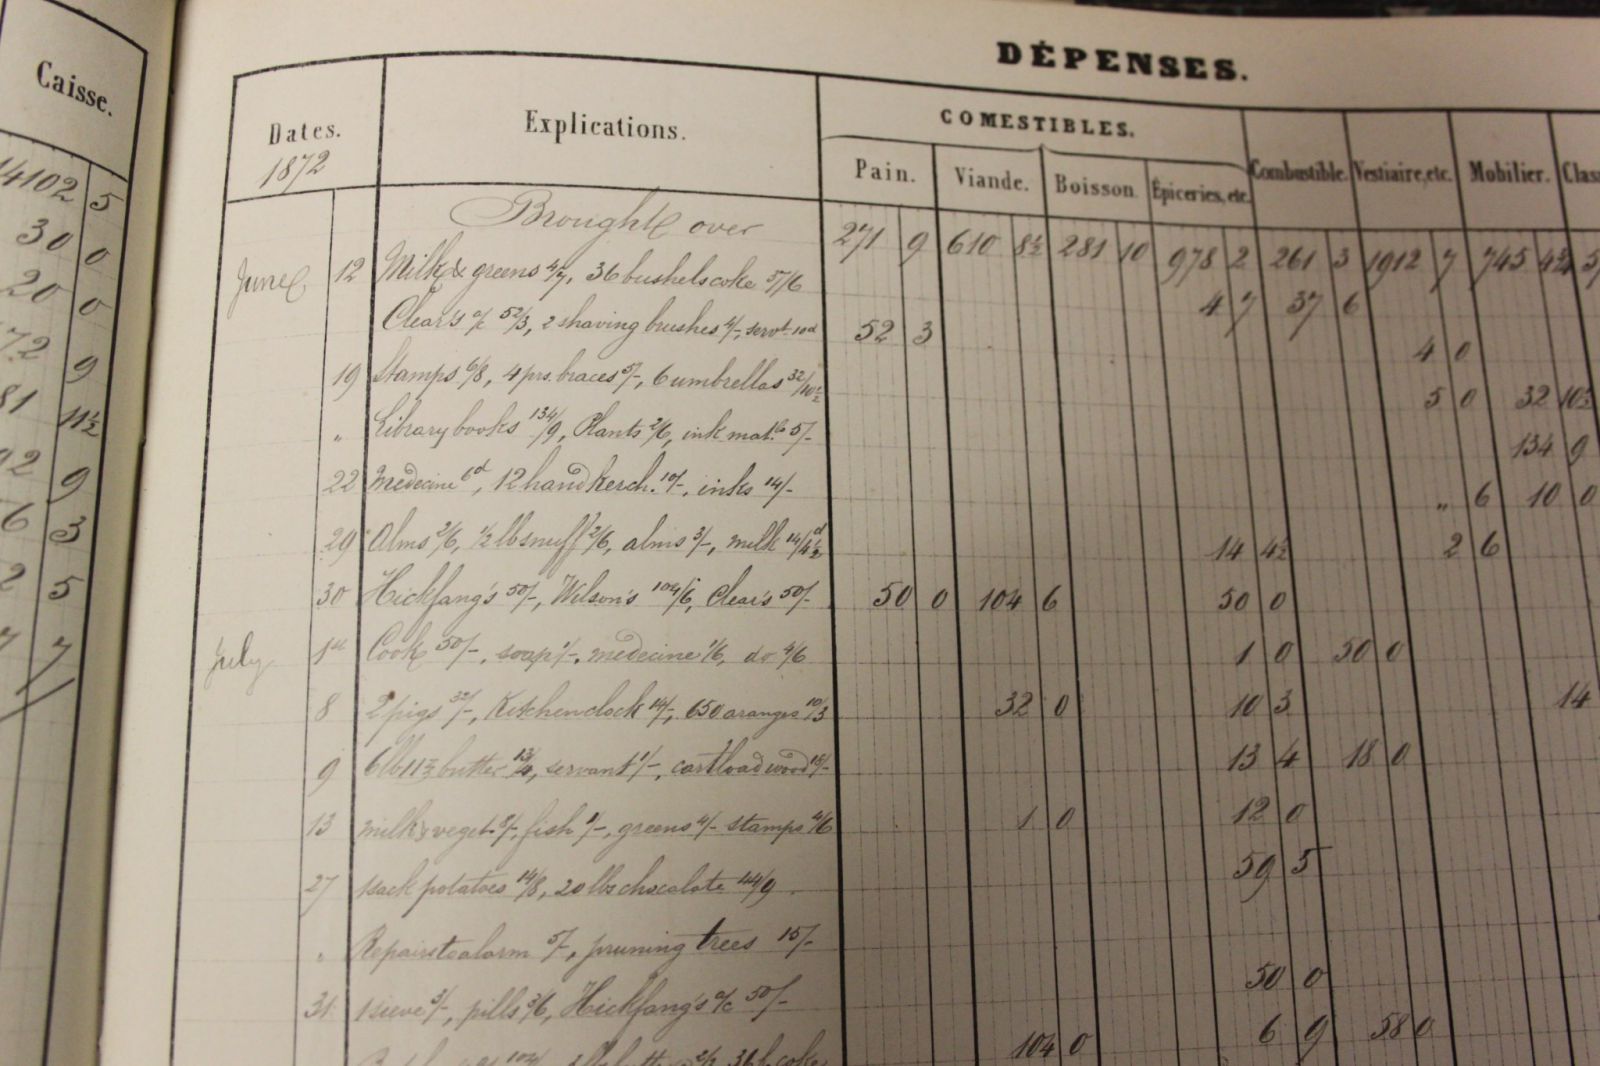 Caisse.
14102 5
30 0
20 0
72 9
81 11½
92 9
6 3
2 5
7 7
DÉPENSES.
Dates. Explications. COMESTIBLES.
1872 Pain. Viande. Boisson. Épiceries, etc. Combustible. Vestiaire, etc. Mobilier. Clas
Brought over 271 9 610 8½ 281 10 978 2 261 3 1912 7 745 4¾ 5
June 12 Milk & greens 4/7, 36 bushels coke 37/6 4 7 37 6
Clear's a/c 52/3, 2 shaving brushes 4/-, servt. 10d 52 3 4 0
19 Stamps 6/8, 4 prs. braces 5/-, 6 umbrellas 32/10½ 5 0 32 10½
" Library books 134/9, Plants 2/6, ink mat. 5/- 134 9
22 Medecine 6d, 12 handkerch. 10/-, inks 14/- " 6 10 0
29 Alms 2/6, 1/2 lb snuff 2/6, alms 3/-, milk 14/4½d 14 4½ 2 6
30 Hickfang's 50/-, Wilson's 104/6, Clear's 50/- 50 0 104 6 50 0
July 1st Cook 50/-, soap 1/-, medecine 1/6, do 4/6 1 0 50 0
8 2 pigs 32/-, Kitchen clock 14/-, 650 oranges 10/3 32 0 10 3 14
9 6 lb 11½ butter 13/4, servant 1/-, cartload wood 18/- 13 4 18 0
13 milk & veget. 8/-, fish 1/-, greens 4/- stamps 4/6 1 0 12 0
27 1 sack potatoes 14/8, 20 lbs chocolate 44/9 59 5
" Repairs to alarm 5/-, pruning trees 15/-
31 1 sieve 3/-, pills 3/6, Hickfang's a/c 50/- 50 0
butter 36 b. coke 104 0 6 9 58 0